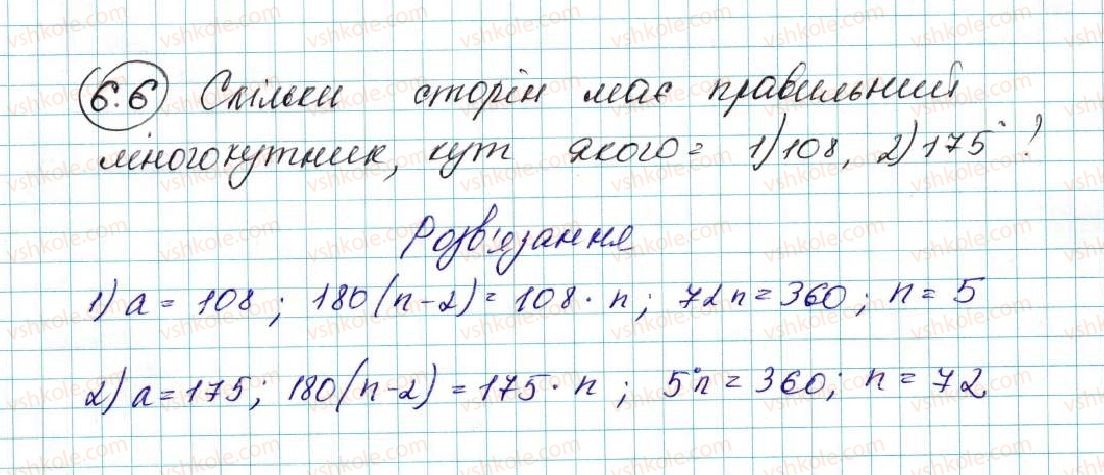 6.6 Скільки сторін має правильний
многокутник, кут якого = 1) 108, 2) 175° ?
Розв'язання
1) a = 108 ; 180 (n-2) = 108 · n ; 72 n = 360 ; n = 5
2) a = 175 ; 180 (n-2) = 175 · n ; 5n = 360 ; n = 72